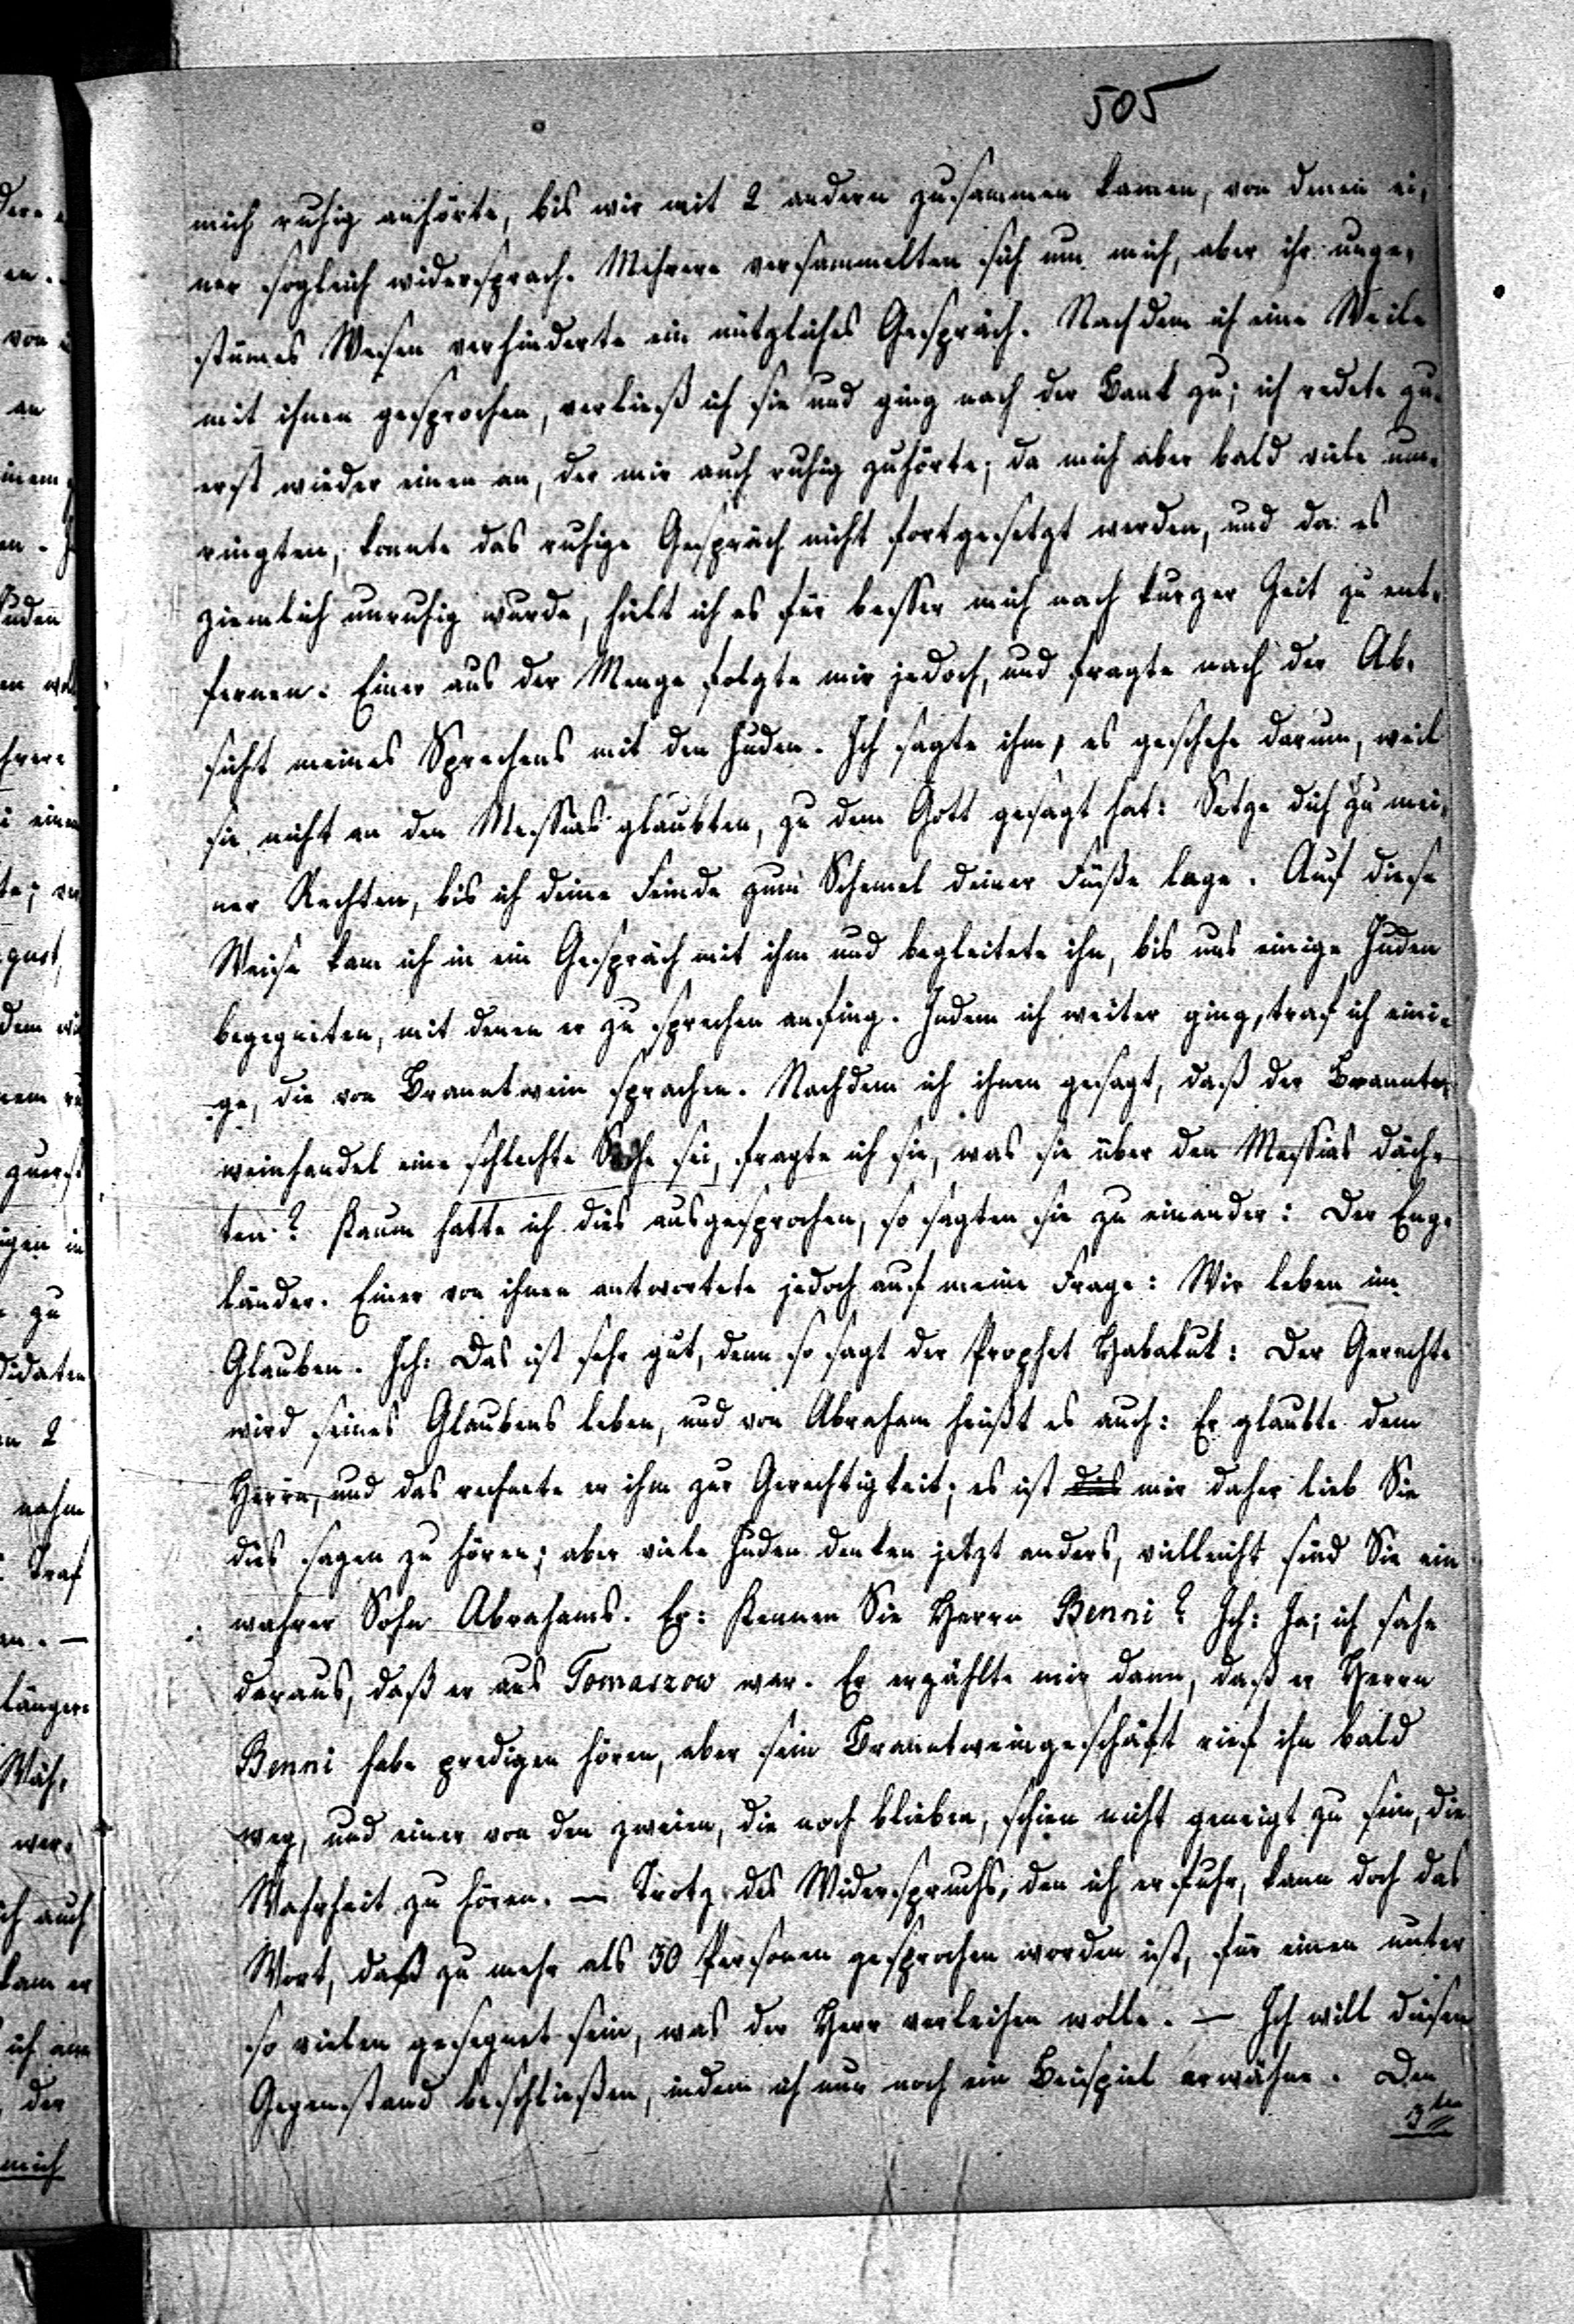 505
mich ruhig anhörte, bis wir mit 2 andern zusammen kamen, von denen ei-
ner sogleich widersprach. Mehrere versammelten sich um mich, aber ihr unge-
stümes Wesen verhinderte ein nützliches Gespräch. Nachdem ich eine Weile
mit ihnen gesprochen, verließ ich sie und ging nach der Bank zu; ich redete zu-
erst wieder einen an, der mir auch ruhig zuhörte; da mich aber bald viele um-
ringten, konnte das ruhige Gespräch nicht fortgesetzt werden, und da es
ziemlich unruhig wurde, hielt ich es für besser mich nach kurzer Zeit zu ent-
fernen. Einer aus der Menge folgte mir jedoch, und fragte nach der Ab-
sicht meines Sprechens mit den Juden. Ich sagte ihm, es geschehe darum, weil
sie nicht an den Messias glaubten, zu dem Gott gesagt hat: Setze dich zu mei-
ner Rechten, bis ich deine Feinde zum Schemel deiner Füße lege. Auf diese
Weise kam ich in ein Gespräch mit ihm und begleitete ihn, bis uns einige Juden
begegneten, mit denen er zu sprechen anfing. Indem ich weiter ging, traf ich eini-
ge, die von Branntwein sprachen. Nachdem ich ihnen gesagt, daß der Brannte-
weinhandel eine schlechte Sache sei, fragte ich sie, was sie über den Messias däch-
ten? Kaum hatte ich dies ausgesprochen, so sagten sie zu einander: Der Eng-
länder. Einer von ihnen antwortete jedoch auf meine Frage: Wir leben im
Glauben. Ich: Das ist sehr gut, denn so sagt der Prophet Habakuk: Der Gerechte
wird seines Glaubens leben, und von Abraham heißt es auch: Er glaubte dem
Herrn, und das rechnete er ihm zur Gerechtigkeit; es ist dies mir daher lieb Sie
dies sagen zu hören; aber viele Juden denken jetzt anders, vielleicht sind Sie ein
wahrer Sohn Abrahams. Er: Kennen Sie Herrn Benni? Ich: Ja; ich sahe
daraus, daß er aus Tomaszow war. Er erzählte mir dann, daß er Herrn
Benni habe predigen hören, aber sein Branntweingeschäft rief ihn bald
weg, und einer von den zweien, die noch blieben, schien nicht geneigt zu sein, die
Wahrheit zu hören. — Trotz des Widerspruchs, den ich erfuhr, kann doch das
Wort, daß zu mehr als 30 Personen gesprochen worden ist, für einen unter
so vielen gesegnet sein, was der Herr verleihen wolle. — Ich will diesen
Gegenstand beschließen, indem ich nur noch ein Beispiel erwähne. Den
3ten